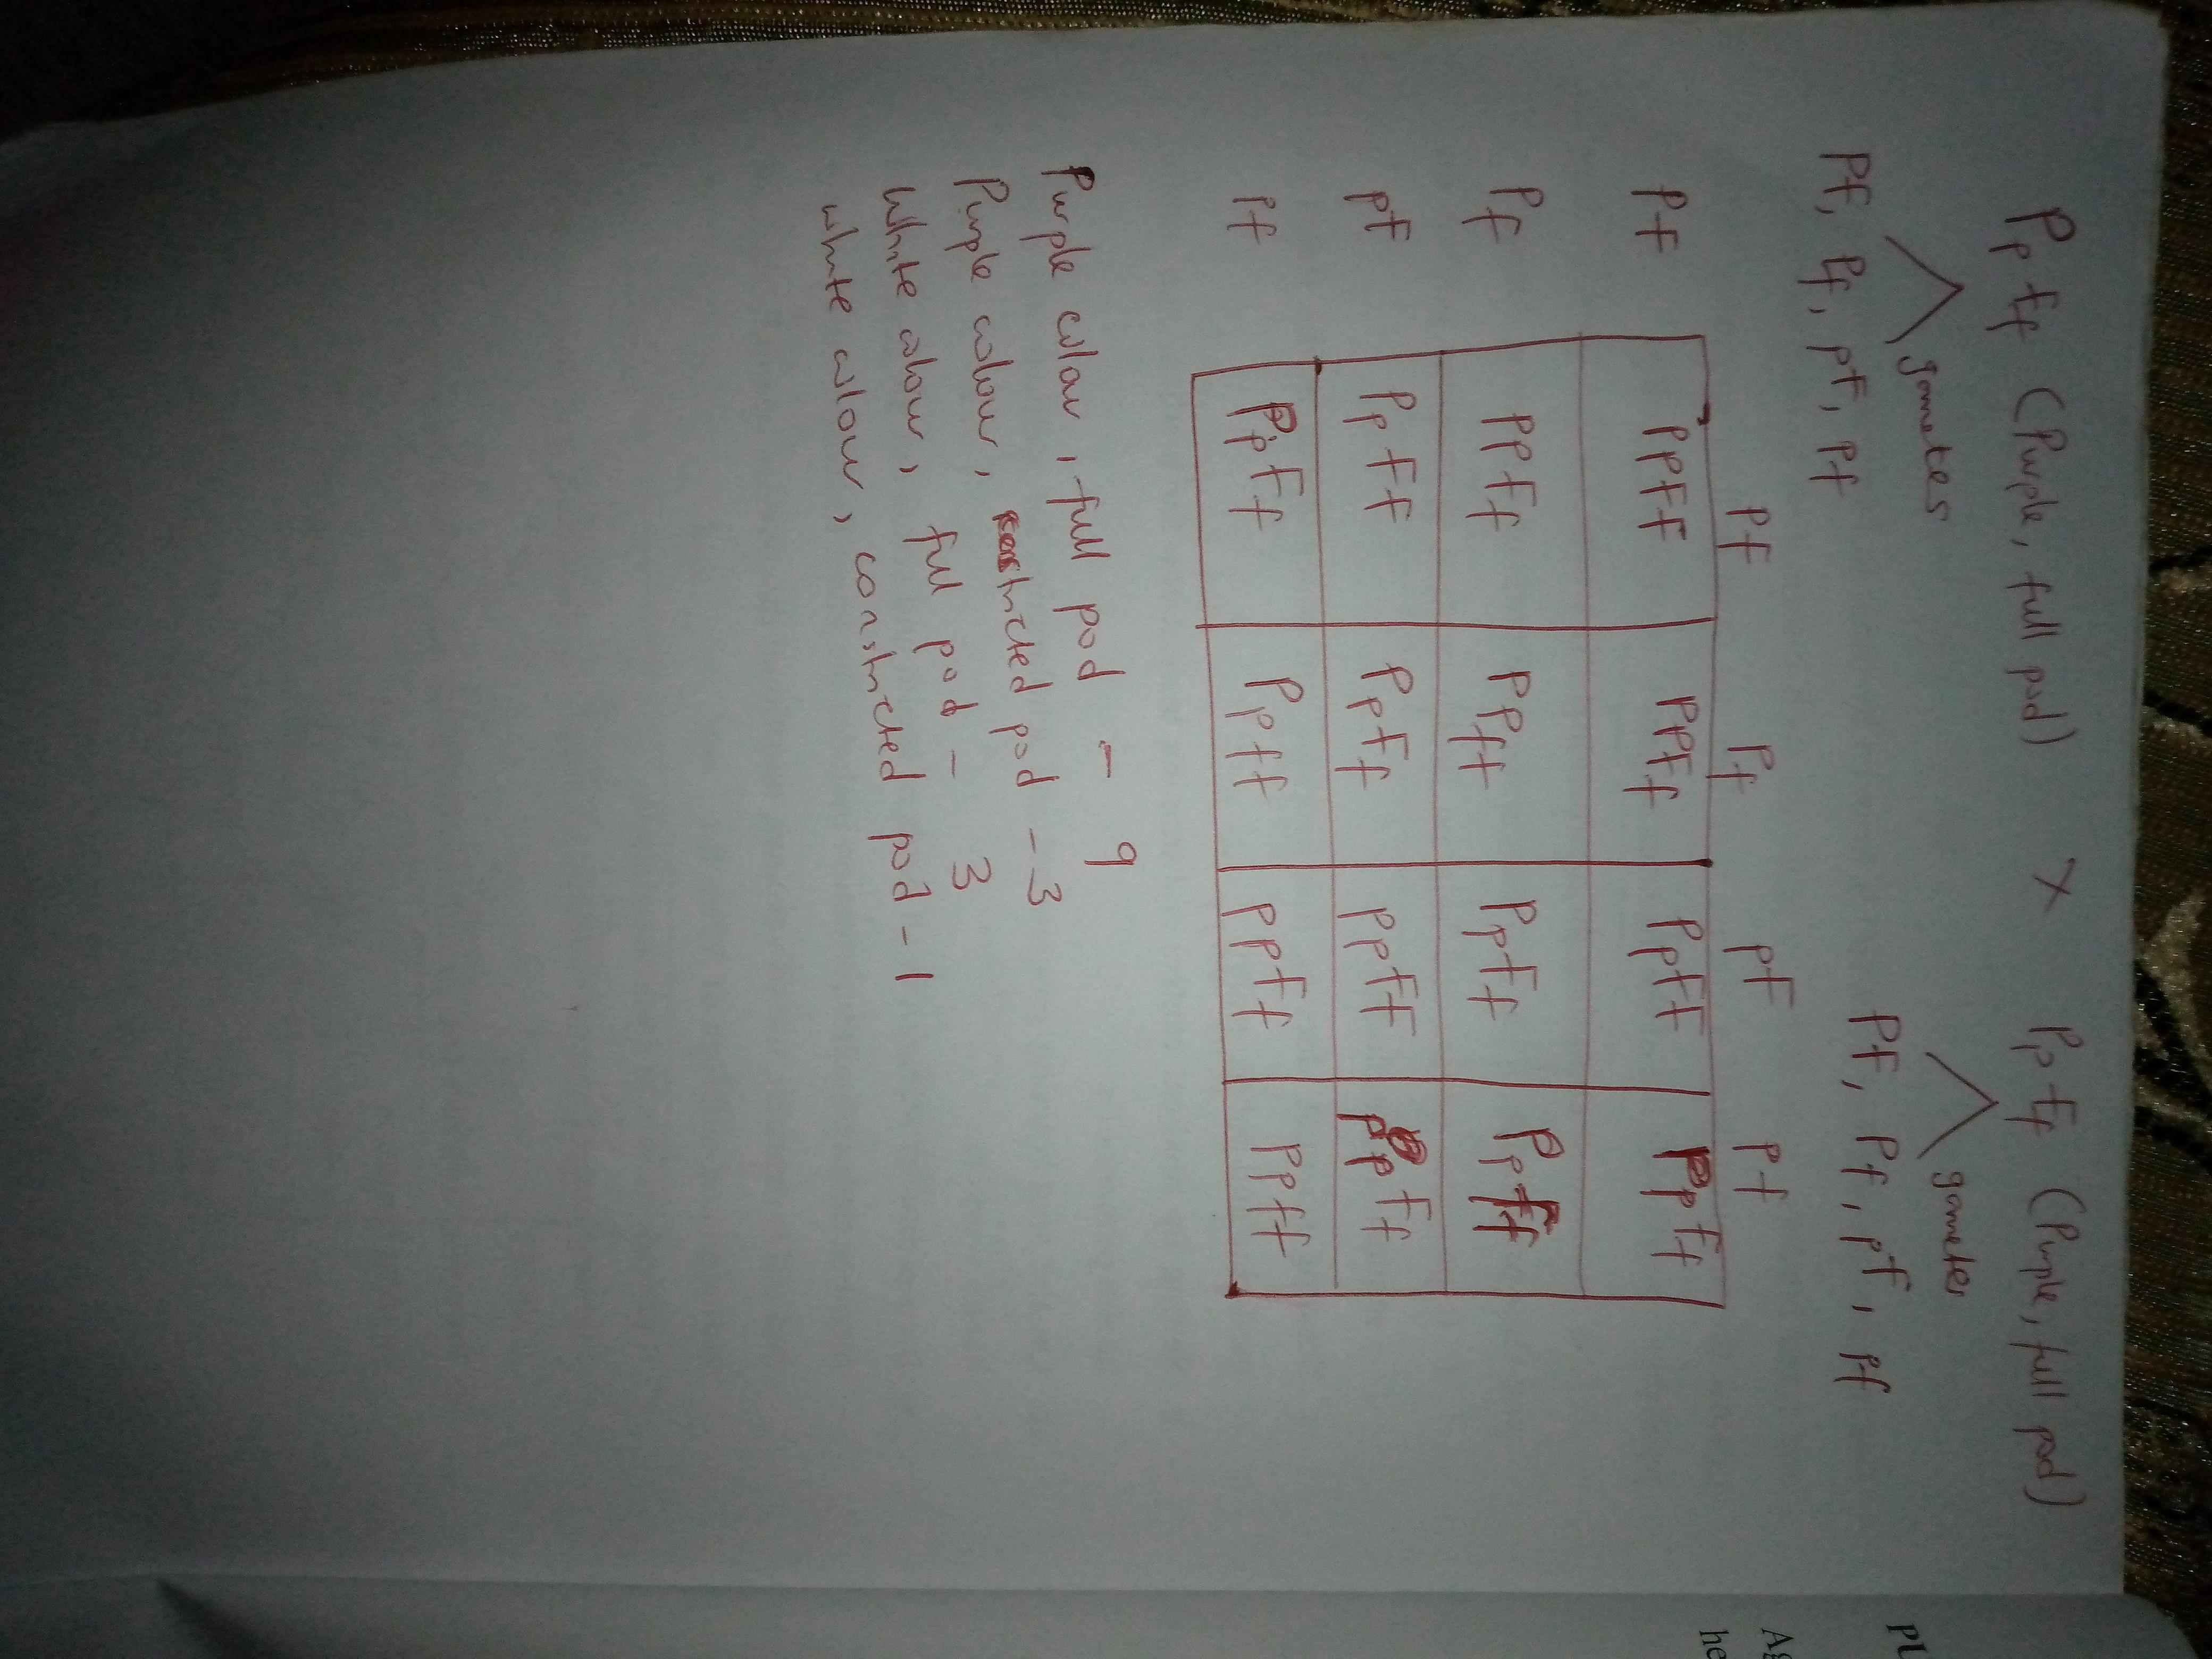 Pp Ff (Purple, full pod) X Pp Ff (Purple, full pod)
gametes gametes
PF, Pf, pF, pf PF, Pf, pF, pf
PF Pf pF pf
PF PPFF PPFf PpFF PpFf
Pf PPFf PPff PpFf Ppff
pF PpFF PpFf ppFF ppFf
pf PpFf Ppff ppFf ppff
Purple colour, full pod - 9
Purple colour, constricted pod - 3
White colour, full pod - 3
white colour, constricted pod - 1
he